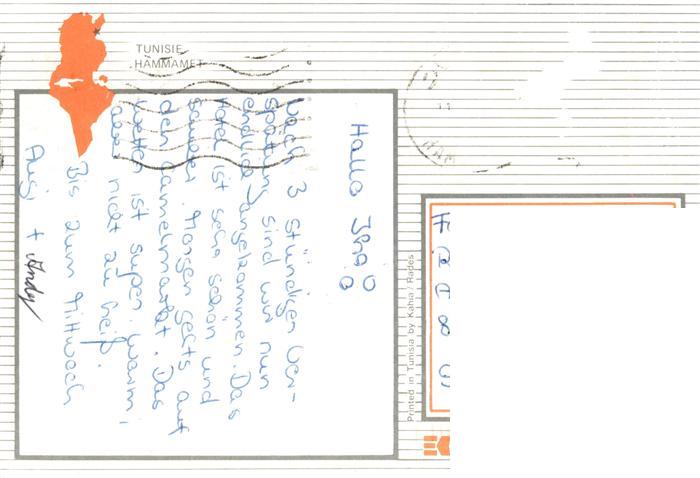 TUNISIE
HAMMAMET
Hallo Ihr
Nach 3 stündiger Ver-
spätung sind wir nun
endlich angekommen. Das
Hotel ist sehr schön und
sauber. Morgen gehts auf
den Camelmarkt. Das
Wetter ist super, warm,
aber nicht zu heiß.
Bis zum Mittwoch
+ Andy
Printed in Tunisia by Kahia / Rades